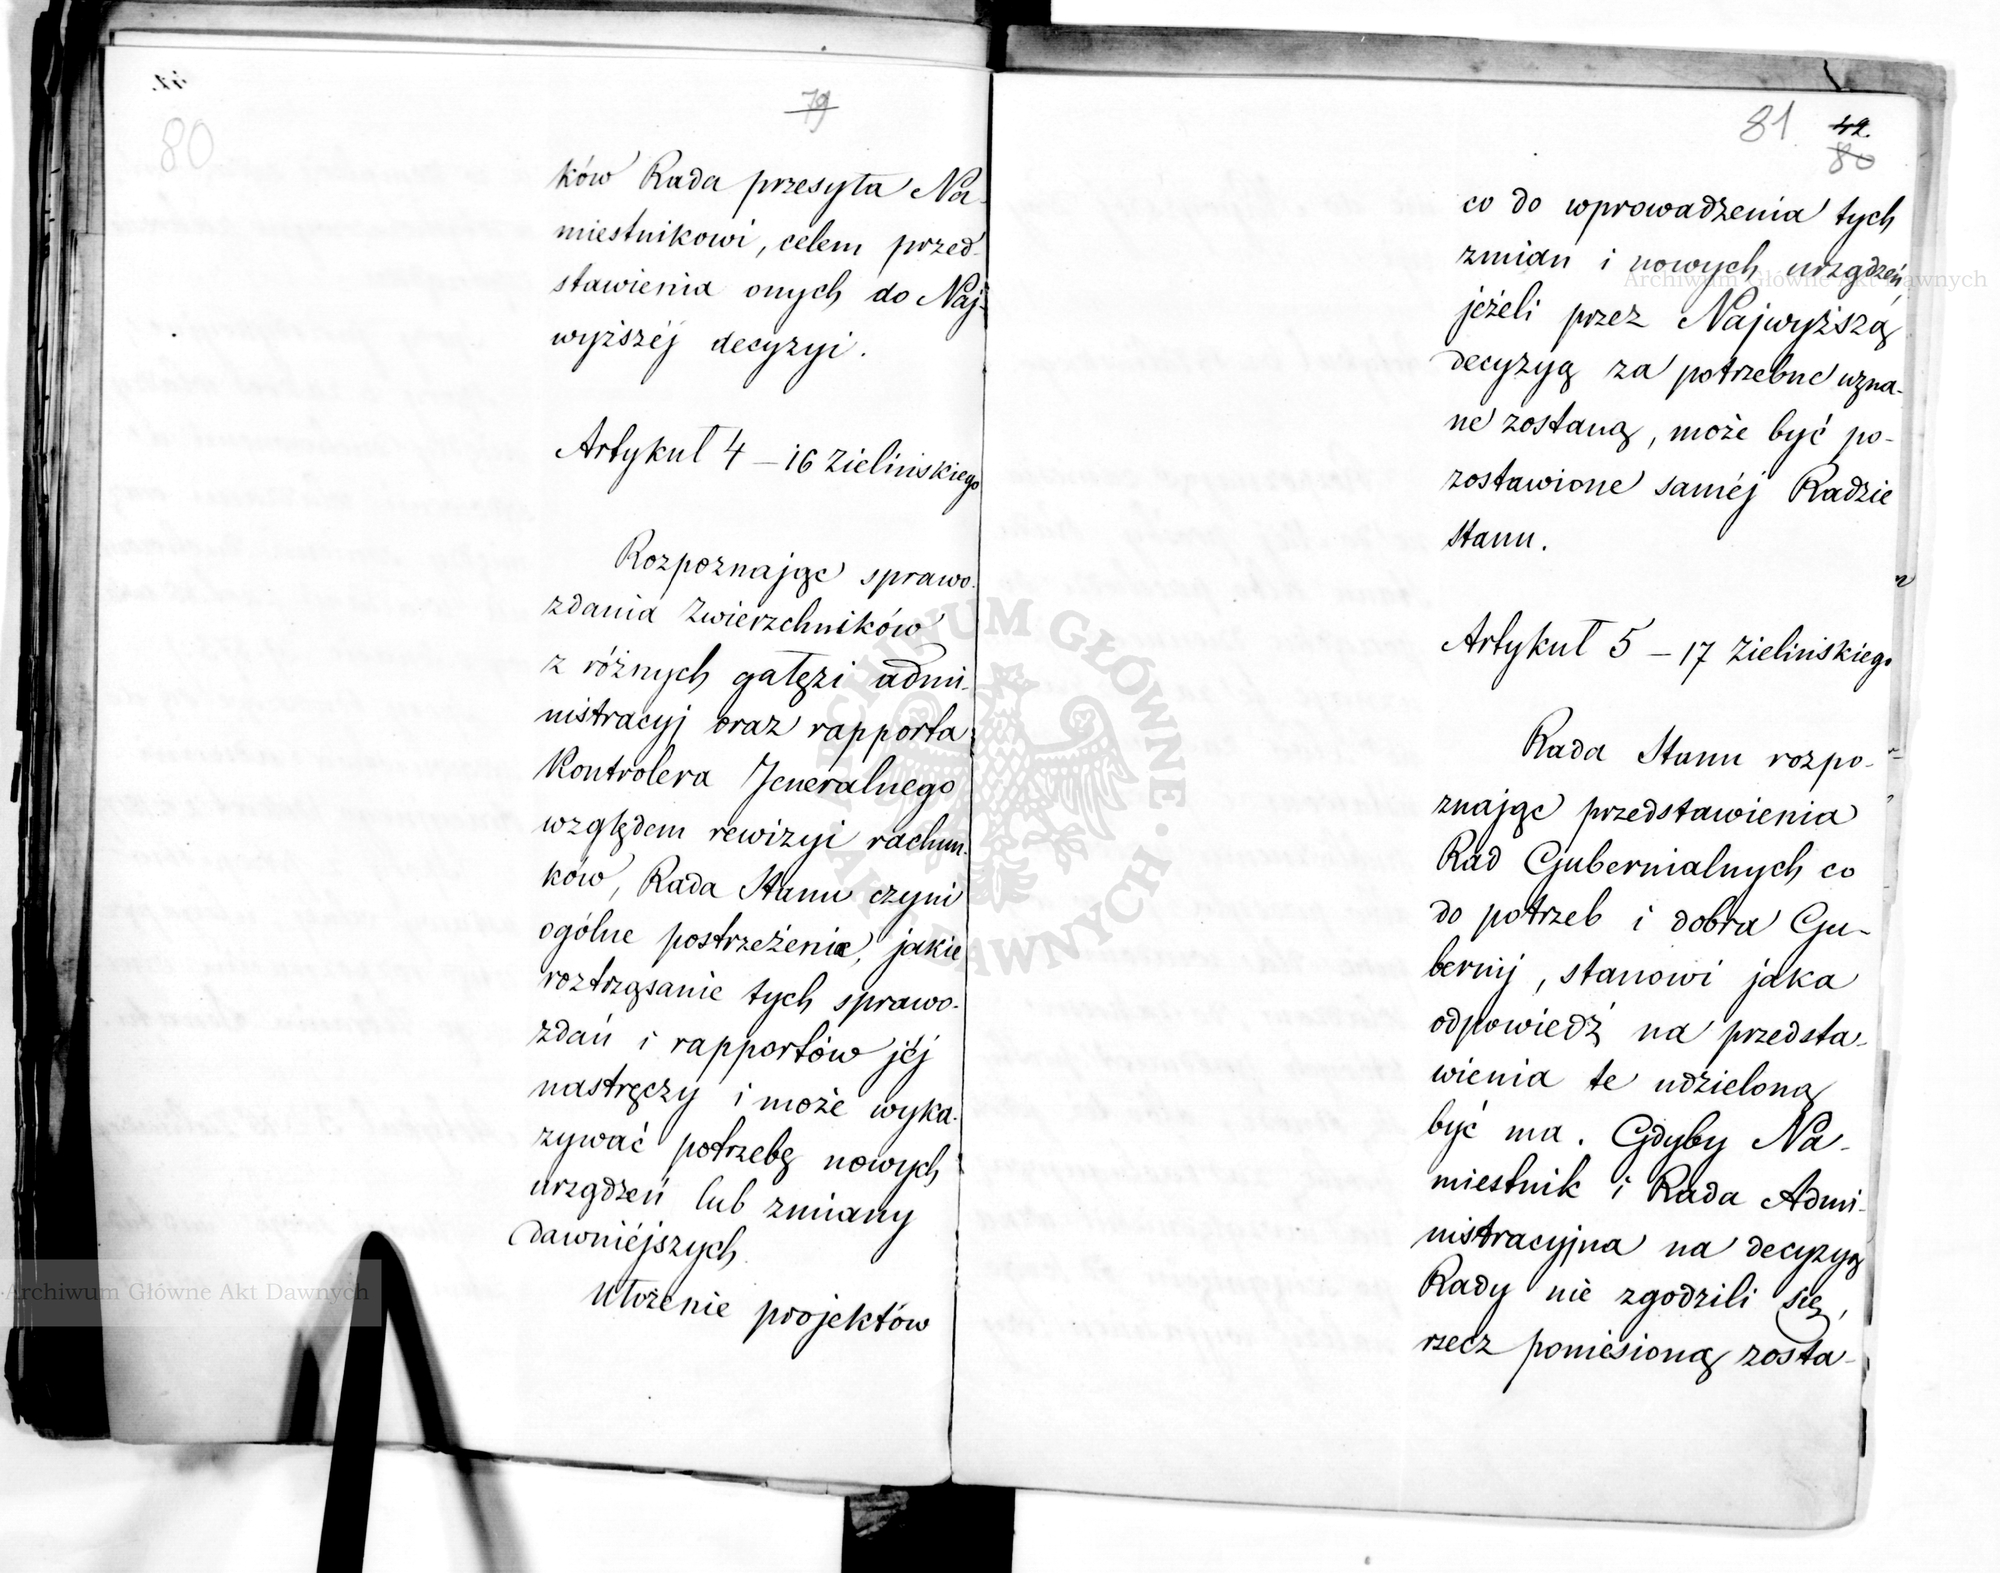 80
79
ków Rada przesyła Na-
miestnikowi, celem przed-
stawienia onych do Naj-
wyższéj decyzyi.
Artykuł 4 – 16 Zielińskiego
Rozpoznając sprawo-
zdania Zwierzchników
z różnych gałęzi admi-
nistracyj oraz rapporta
Kontrolera Jeneralnego
względem rewizyi rachun-
ków, Rada Stanu czyni
ogólne postrzeżenia, jakie
roztrząsanie tych sprawo-
zdań i rapportów jéj
nastręczy i może wyka-
zywać potrzebę nowych
urządzeń lub zmiany
dawniéjszych.
Ułożenie projektów
81 42.
80
co do wprowadzenia tych
zmian i nowych urządzeń,
jeżeli przez Najwyższą
decyzyą za potrzebne uzna-
ne zostaną, może być po-
zostawione saméj Radzie
Stanu.
Artykuł 5 – 17 Zielińskiego
Rada Stanu rozpo-
znając przedstawienia
Rad Gubernialnych co
do potrzeb i dobra Gu-
bernij, stanowi jaka
odpowiedź na przedsta-
wienia te udzieloną
być ma. Gdyby Na-
miestnik i Rada Admi-
nistracyjna na decyzyą
Rady nie zgodzili się,
rzecz poniesioną zosta-
Archiwum Główne Akt Dawnych
ARCHIWUM GŁÓWNE · AKT DAWNYCH ·
Archiwum Główne Akt Dawnych